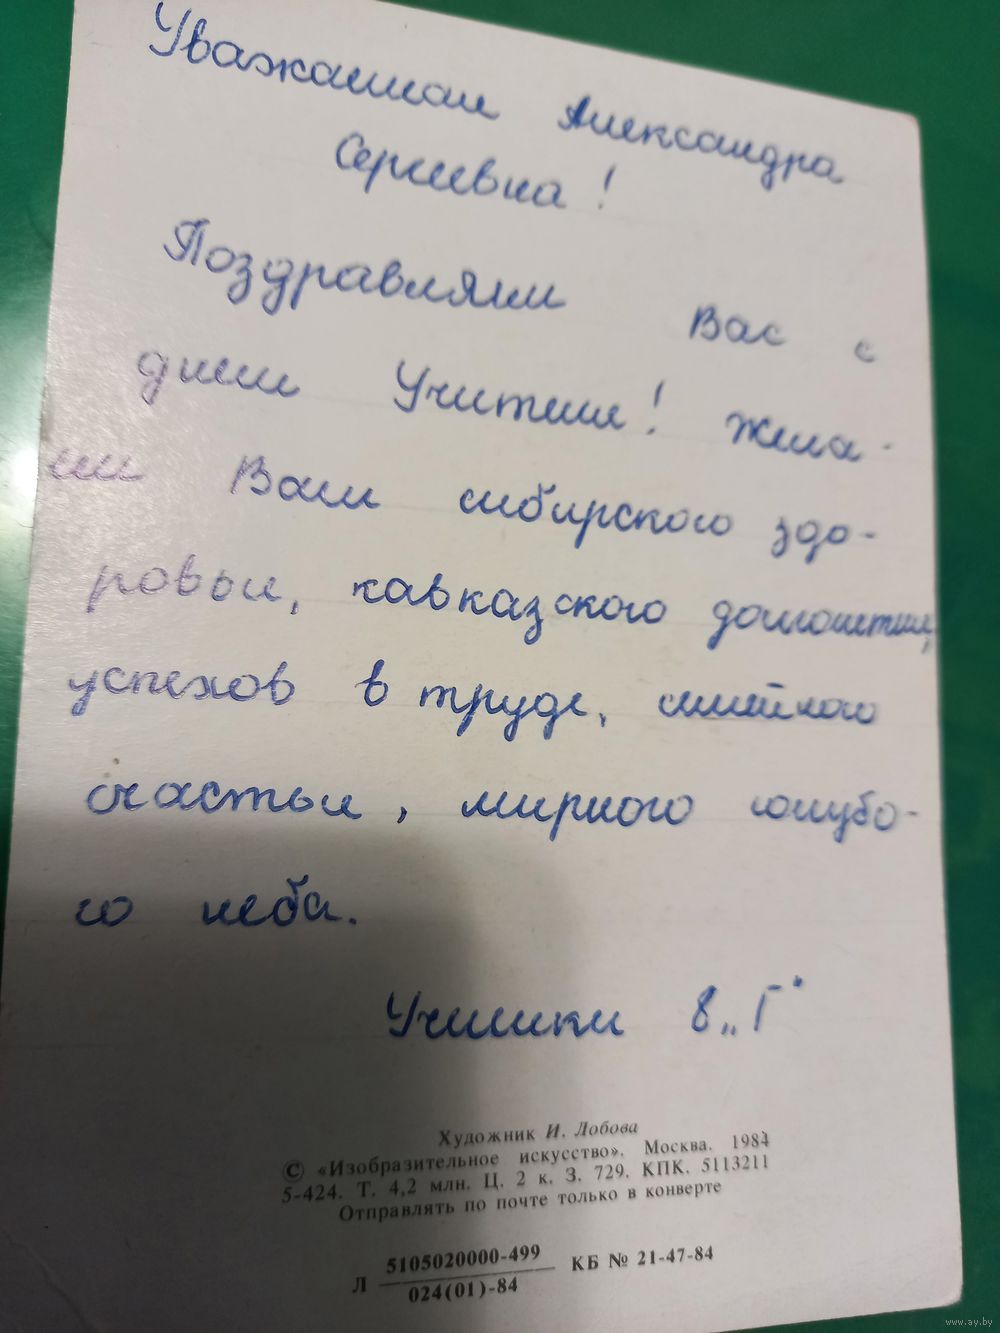 Уважаемая Александра
Сергеевна!
Поздравляем Вас с
днем Учителя! Жела-
ем Вам сибирского здо-
ровья, кавказского долголетия,
успехов в труде, семейного
счастья, мирного голубо-
го неба.
Ученики 8 „Г"
Художник И. Лобова
© «Изобразительное искусство». Москва. 1984
5-424. Т. 4,2 млн. Ц. 2 к. З. 729. КПК. 5113211
Отправлять по почте только в конверте
Л 5105020000-499 КБ № 21-47-84
024(01)-84
www.ay.by